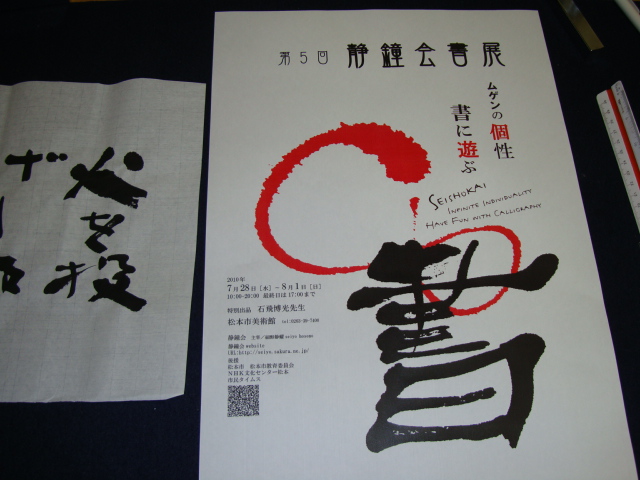 第5回 静鐘会書展
ムゲンの個性
書に遊ぶ
SEISHOKAI
INFINITE INDIVIDUALITY
HAVE FUN WITH CALLIGRAPHY
書
2010年
7月28日［水］~8月1日［日］
10:00-20:00 最終日は17:00まで
特別出品 石飛博光先生
松本市美術館 tel:0263-39-7400
静鐘会website
URL:http://seiyo.sakura.ne.jp/
後援
松本市 松本市教育委員会
NHK文化センター松本
市民タイムス
火を投